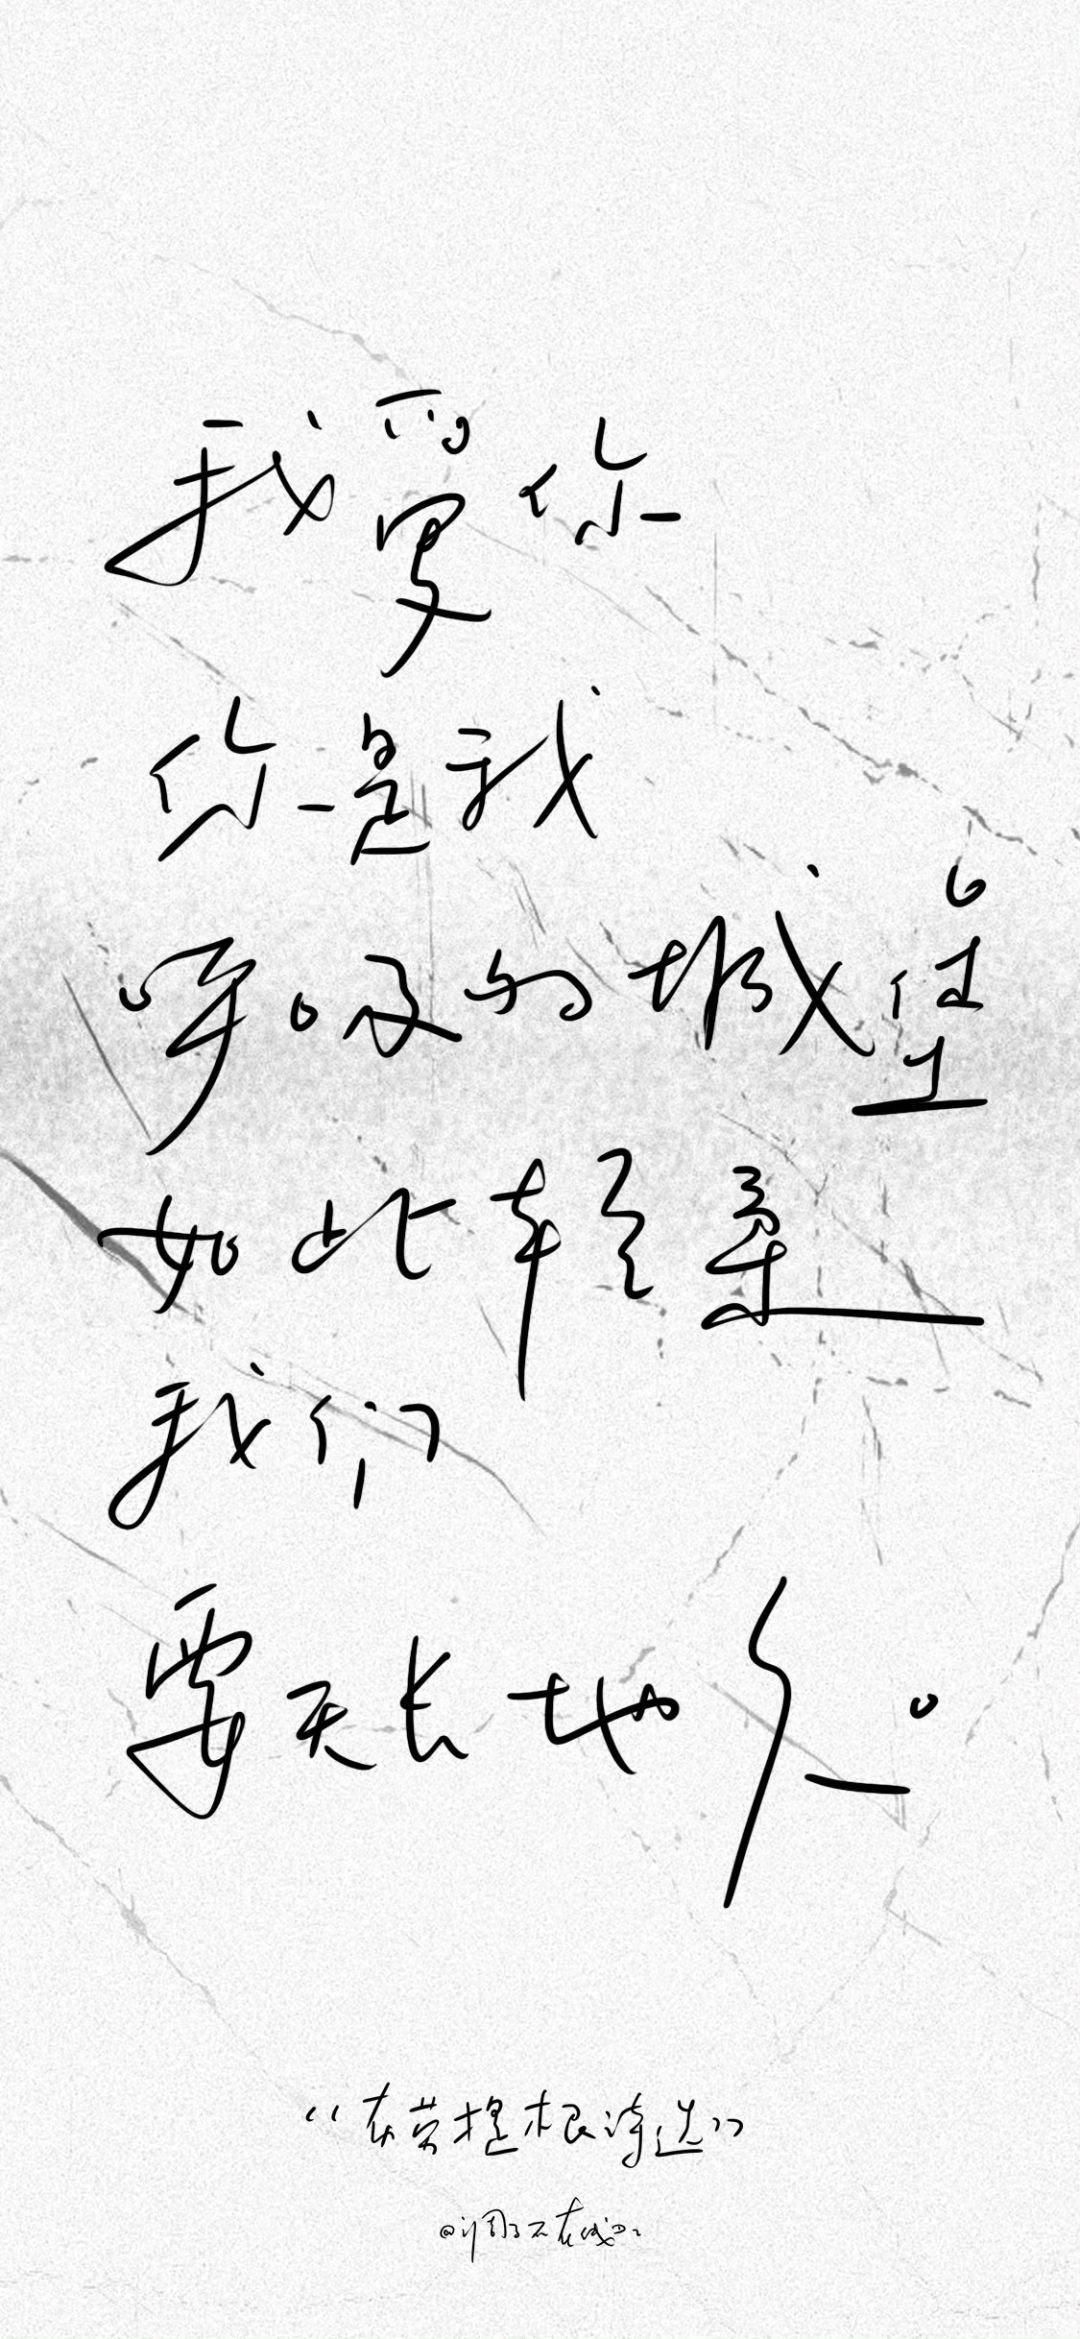 我爱你
你是我
呼吸的城堡
如此轻柔
我们
要天长地久。
“在劳提根诗选”